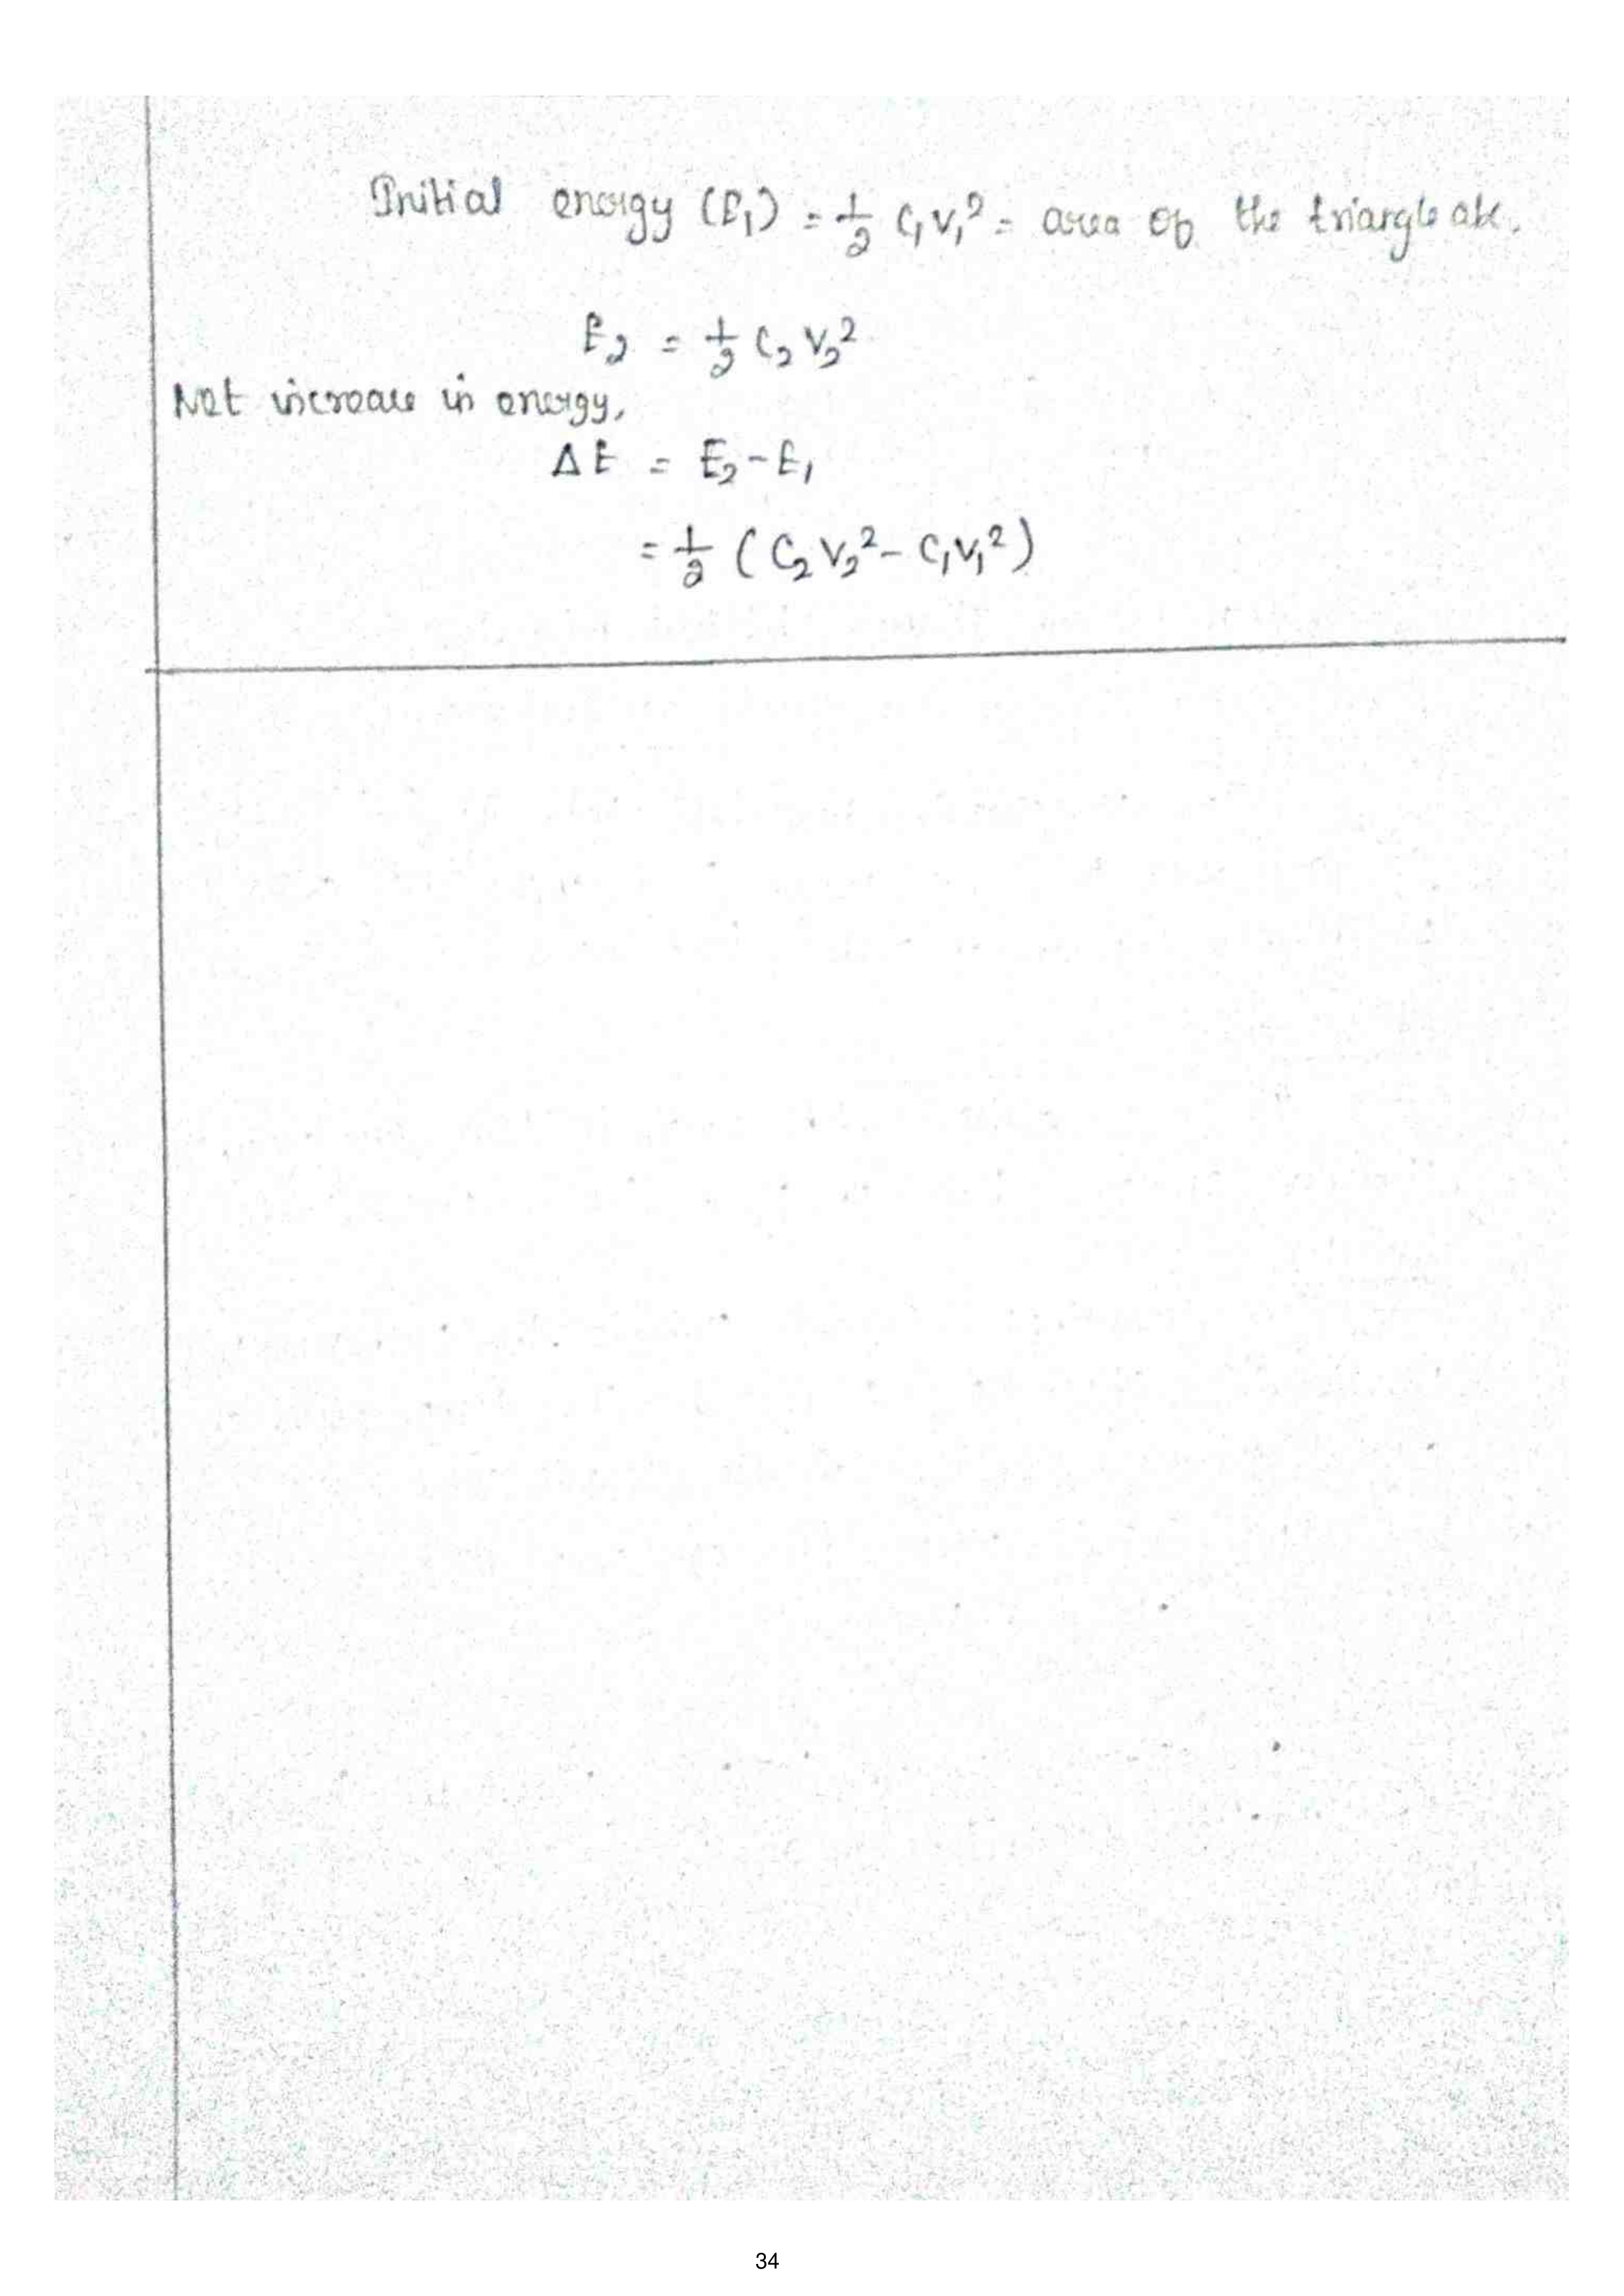 Initial energy (E₁) = 1/2 C₁V₁² = area of the triangle abc.
E₂ = 1/2 C₂ V₂²
Net increase in energy,
ΔE = E₂ - E₁
= 1/2 ( C₂ V₂² - C₁V₁² )
34